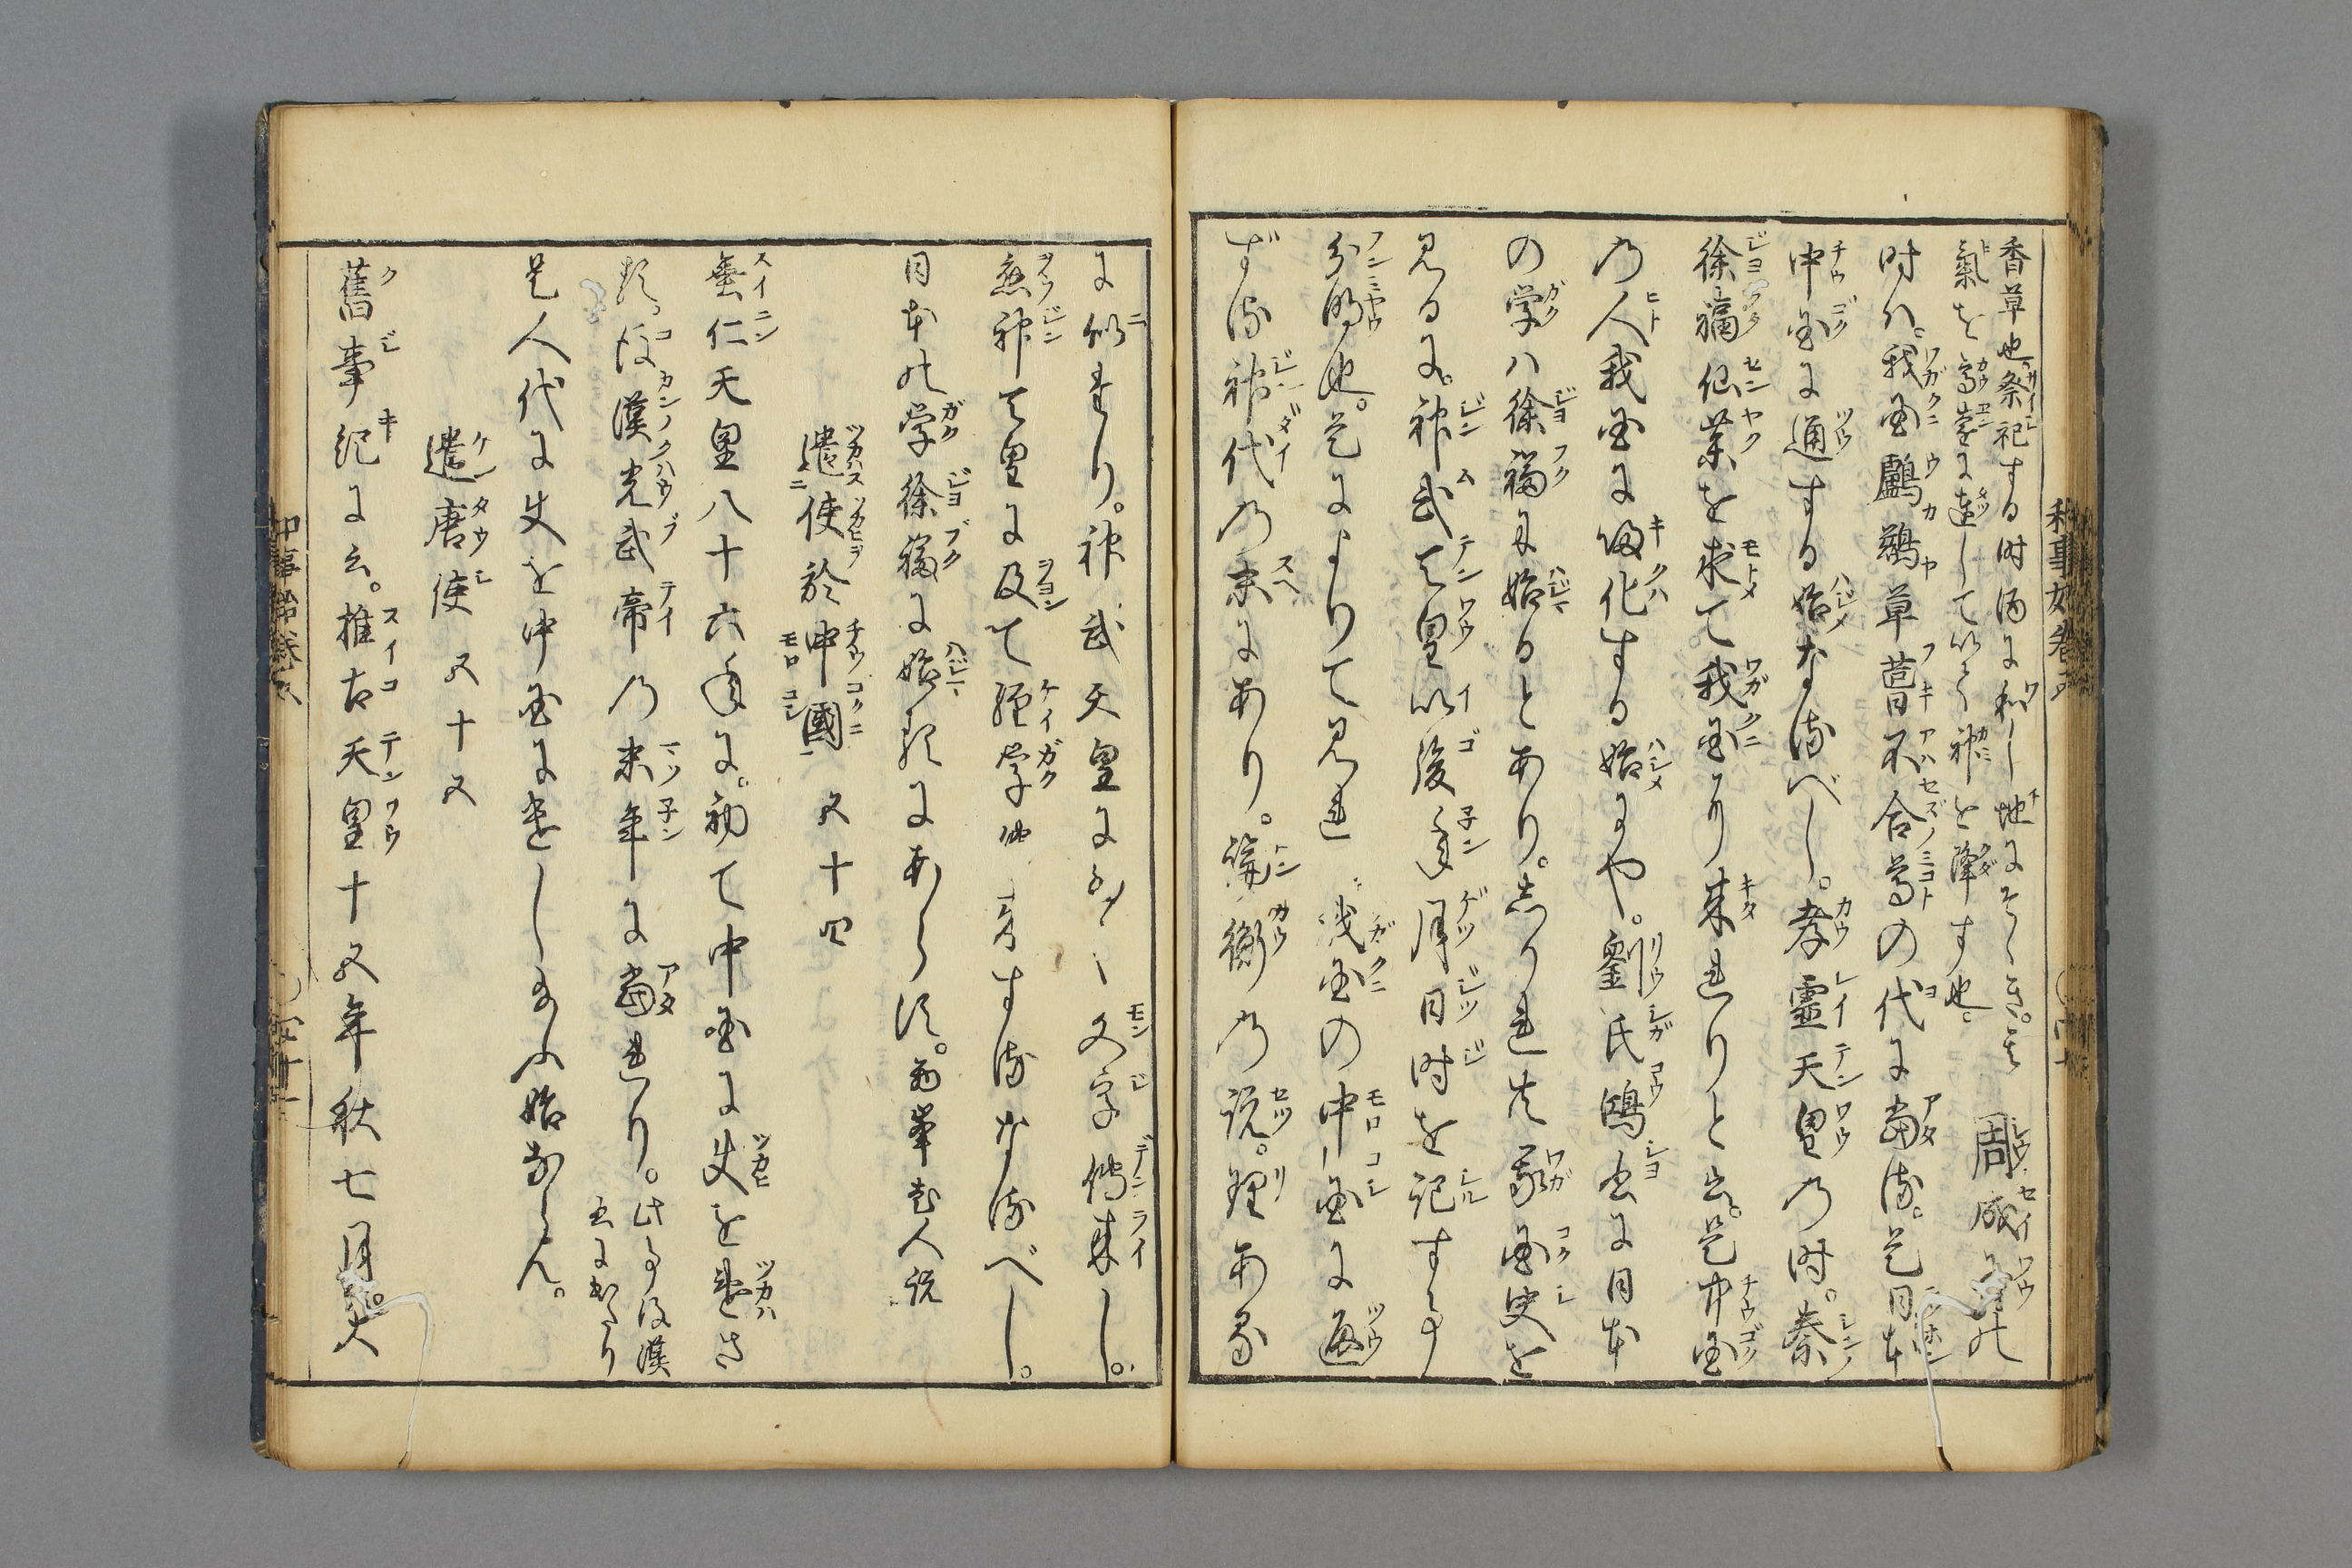 香草也。祭祀する時酒に和し地にそゝぎ。其
氣を高遠に達して以て神を降す也。 周成王の
時ハ。我国鸕鷀草葺不合尊の代に當る。是日本
中国に通ずる始なるべし。孝霊天皇の時。秦
徐福仙薬を求て。我国に来れりと云。是中国
の人我国に帰化する始にや。劉氏鴻書に日本
の学ハ徐福に始るとあり。しかれ共我国史を
見るに。神武天皇以後年月日時を記する事
分明也。是によりて見れバ我国の中国に通
ずる神代の末にあり。 の説。理ある
に似たり。神武天皇に 文字傳来し。
應神天皇に及て經学 するなるべし。
日本の学徐福に始るにあらず。
遣使於中國 五十四
垂仁天皇八十六年に。初て中国に使を遣さ
る。後漢光武帝の末年に當れり。此事後漢
書に出たり
是人代に使を中国に遣し玉ふ始ならん。
遣唐使 五十五
舊事紀に云。推古天皇十五年秋七月。大